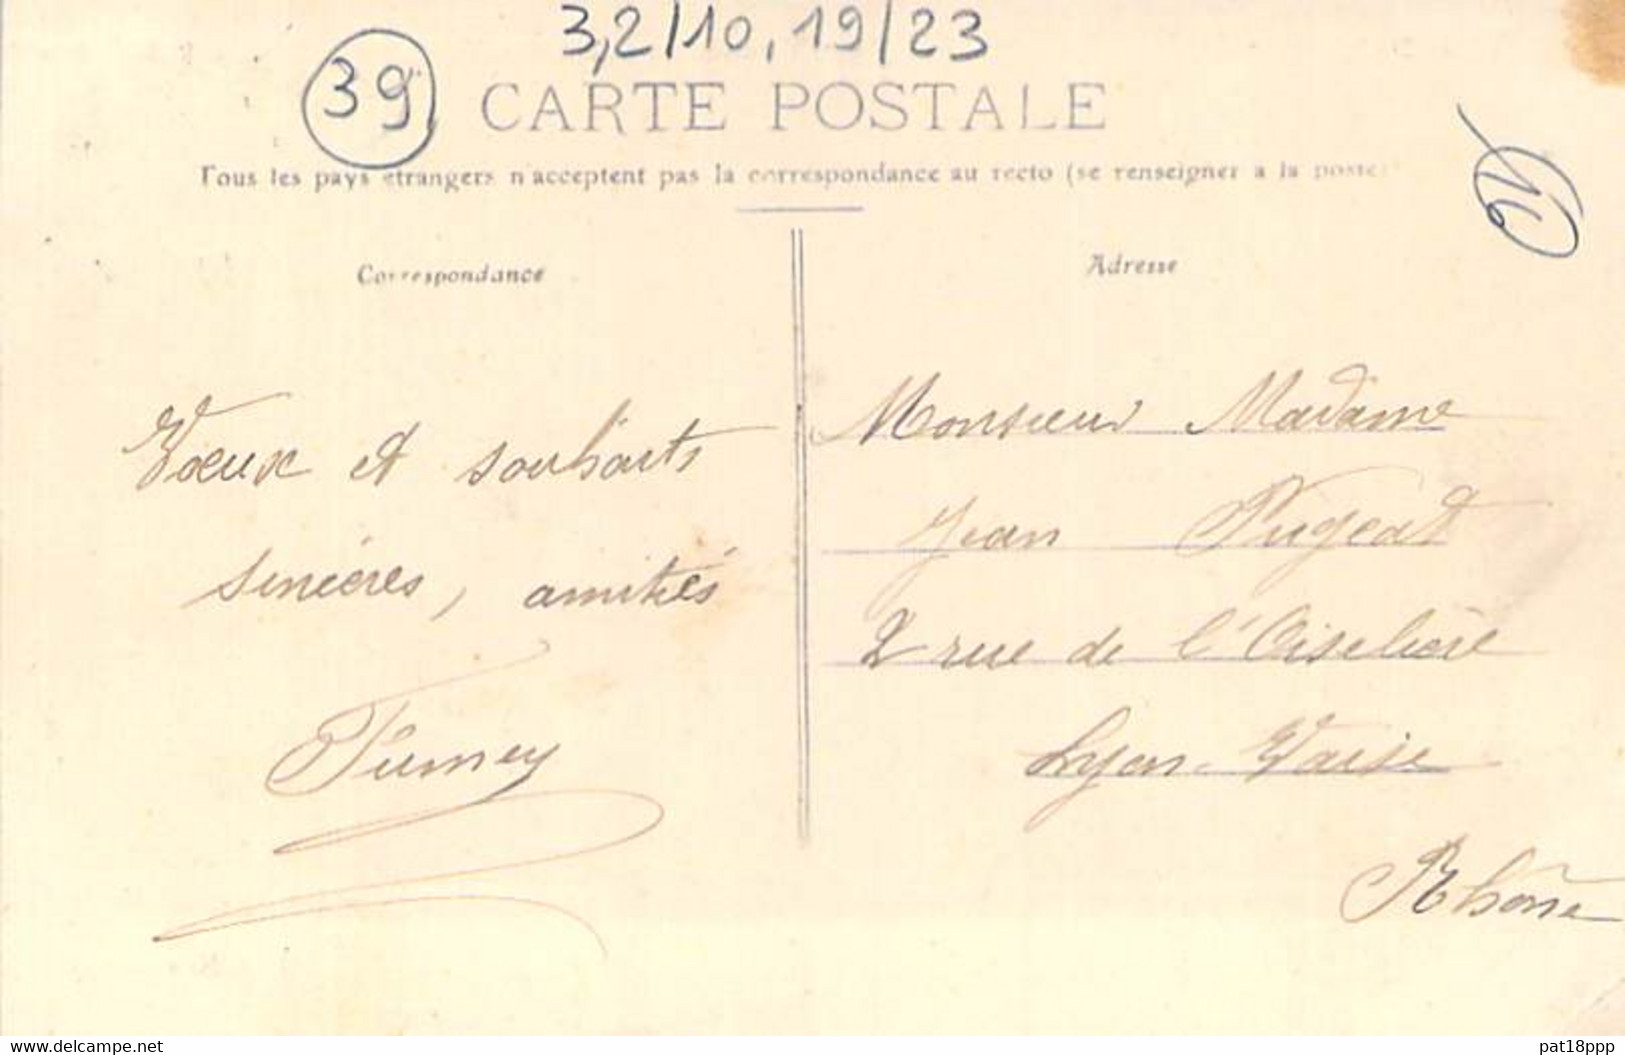 3,2/10, 19/23
39
CARTE POSTALE
Tous les pays étrangers n'acceptent pas la correspondance au recto (se renseigner à la poste)
Correspondance
Adresse
Voeux et souhaits
sincères, amitiés
Monsieur Madame
Jean Pugeat
2 rue de l'Oiselière
Lyon-Vaise
Rhône
www.delcampe.net
pat18ppp